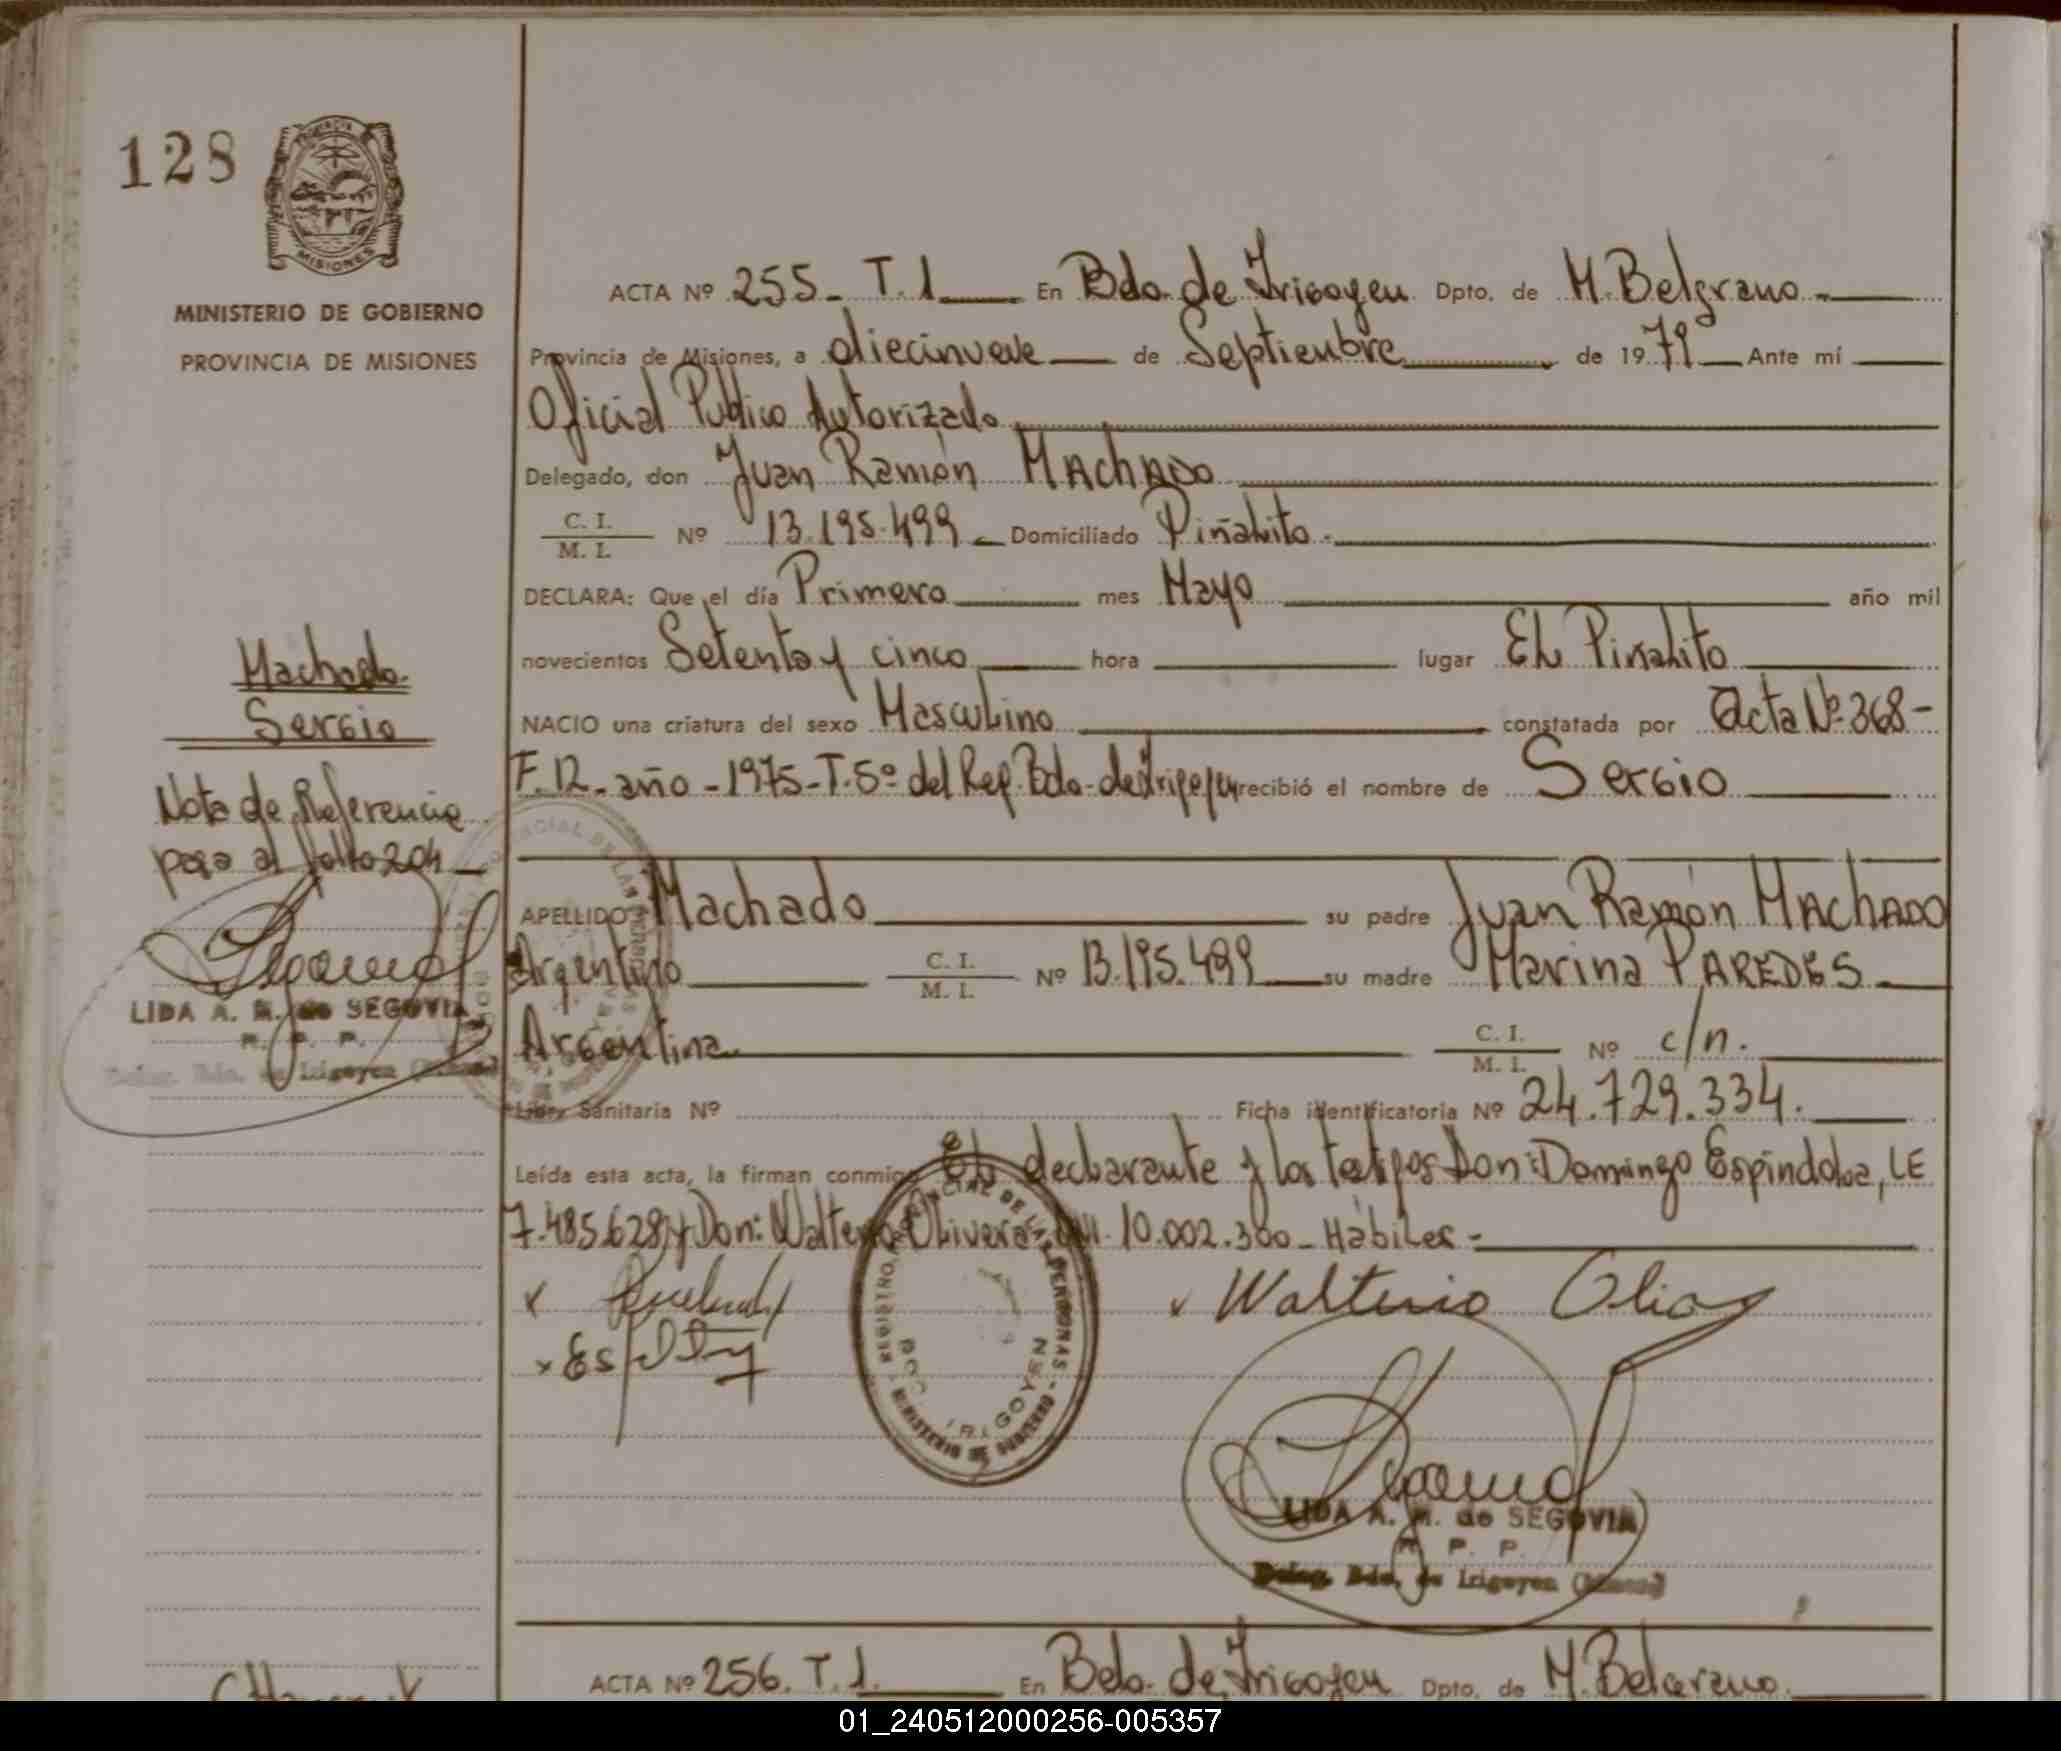 128
PROVINCIA
MISIONES
MINISTERIO DE GOBIERNO
PROVINCIA DE MISIONES
ACTA Nº 255_ T. 1 En Bdo. de Irigoyen Dpto. de M. Belgrano -
Provincia de Misiones, a diecinueve de Septiembre de 1979 Ante mí
Oficial Publico Autorizado
Delegado, don Juan Ramón MACHADO
C. I.
M. I. Nº 13.195.499 Domiciliado Piñalito -
DECLARA: Que el día Primero mes Mayo año mil
novecientos Setenta y cinco hora lugar EL Piñalito
NACIO una criatura del sexo Masculino constatada por Acta Nº 368-
F. 12. año - 1975 - T. 5º del Reg. Bdo. de Irigoyen recibió el nombre de Sergio
APELLIDO Machado su padre Juan Ramón MACHADO
Argentino C. I. M. I. Nº 13.195.499 su madre Marina PAREDES
Argentina C. I. M. I. Nº c/n.
Libr. Sanitaria Nº Ficha identificatoria Nº 24.729.334.
Leída esta acta, la firman conmigo EL declarante y los testigos Don: Domingo Espindola, LE
7.485.628 y Don: Walterio Olivera 10.002.300 - Hábiles -
Walterio
LIDA A. M. de SEGOVIA
R. P. P.
Deleg. Bdo. de Irigoyen
Machado
Sergio
Nota de Referencia
pasa al folio 204
LIDA A. M. de SEGOVIA
R. P. P.
Deleg. Bdo. de Irigoyen
REGISTRO PROVINCIAL DE LAS PERSONAS - MINISTERIO DE GOBIERNO
IRIGOYEN
ACTA Nº 256. T. 1. En Bdo. de Irigoyen Dpto. de M. Belgrano.
01_240512000256-005357